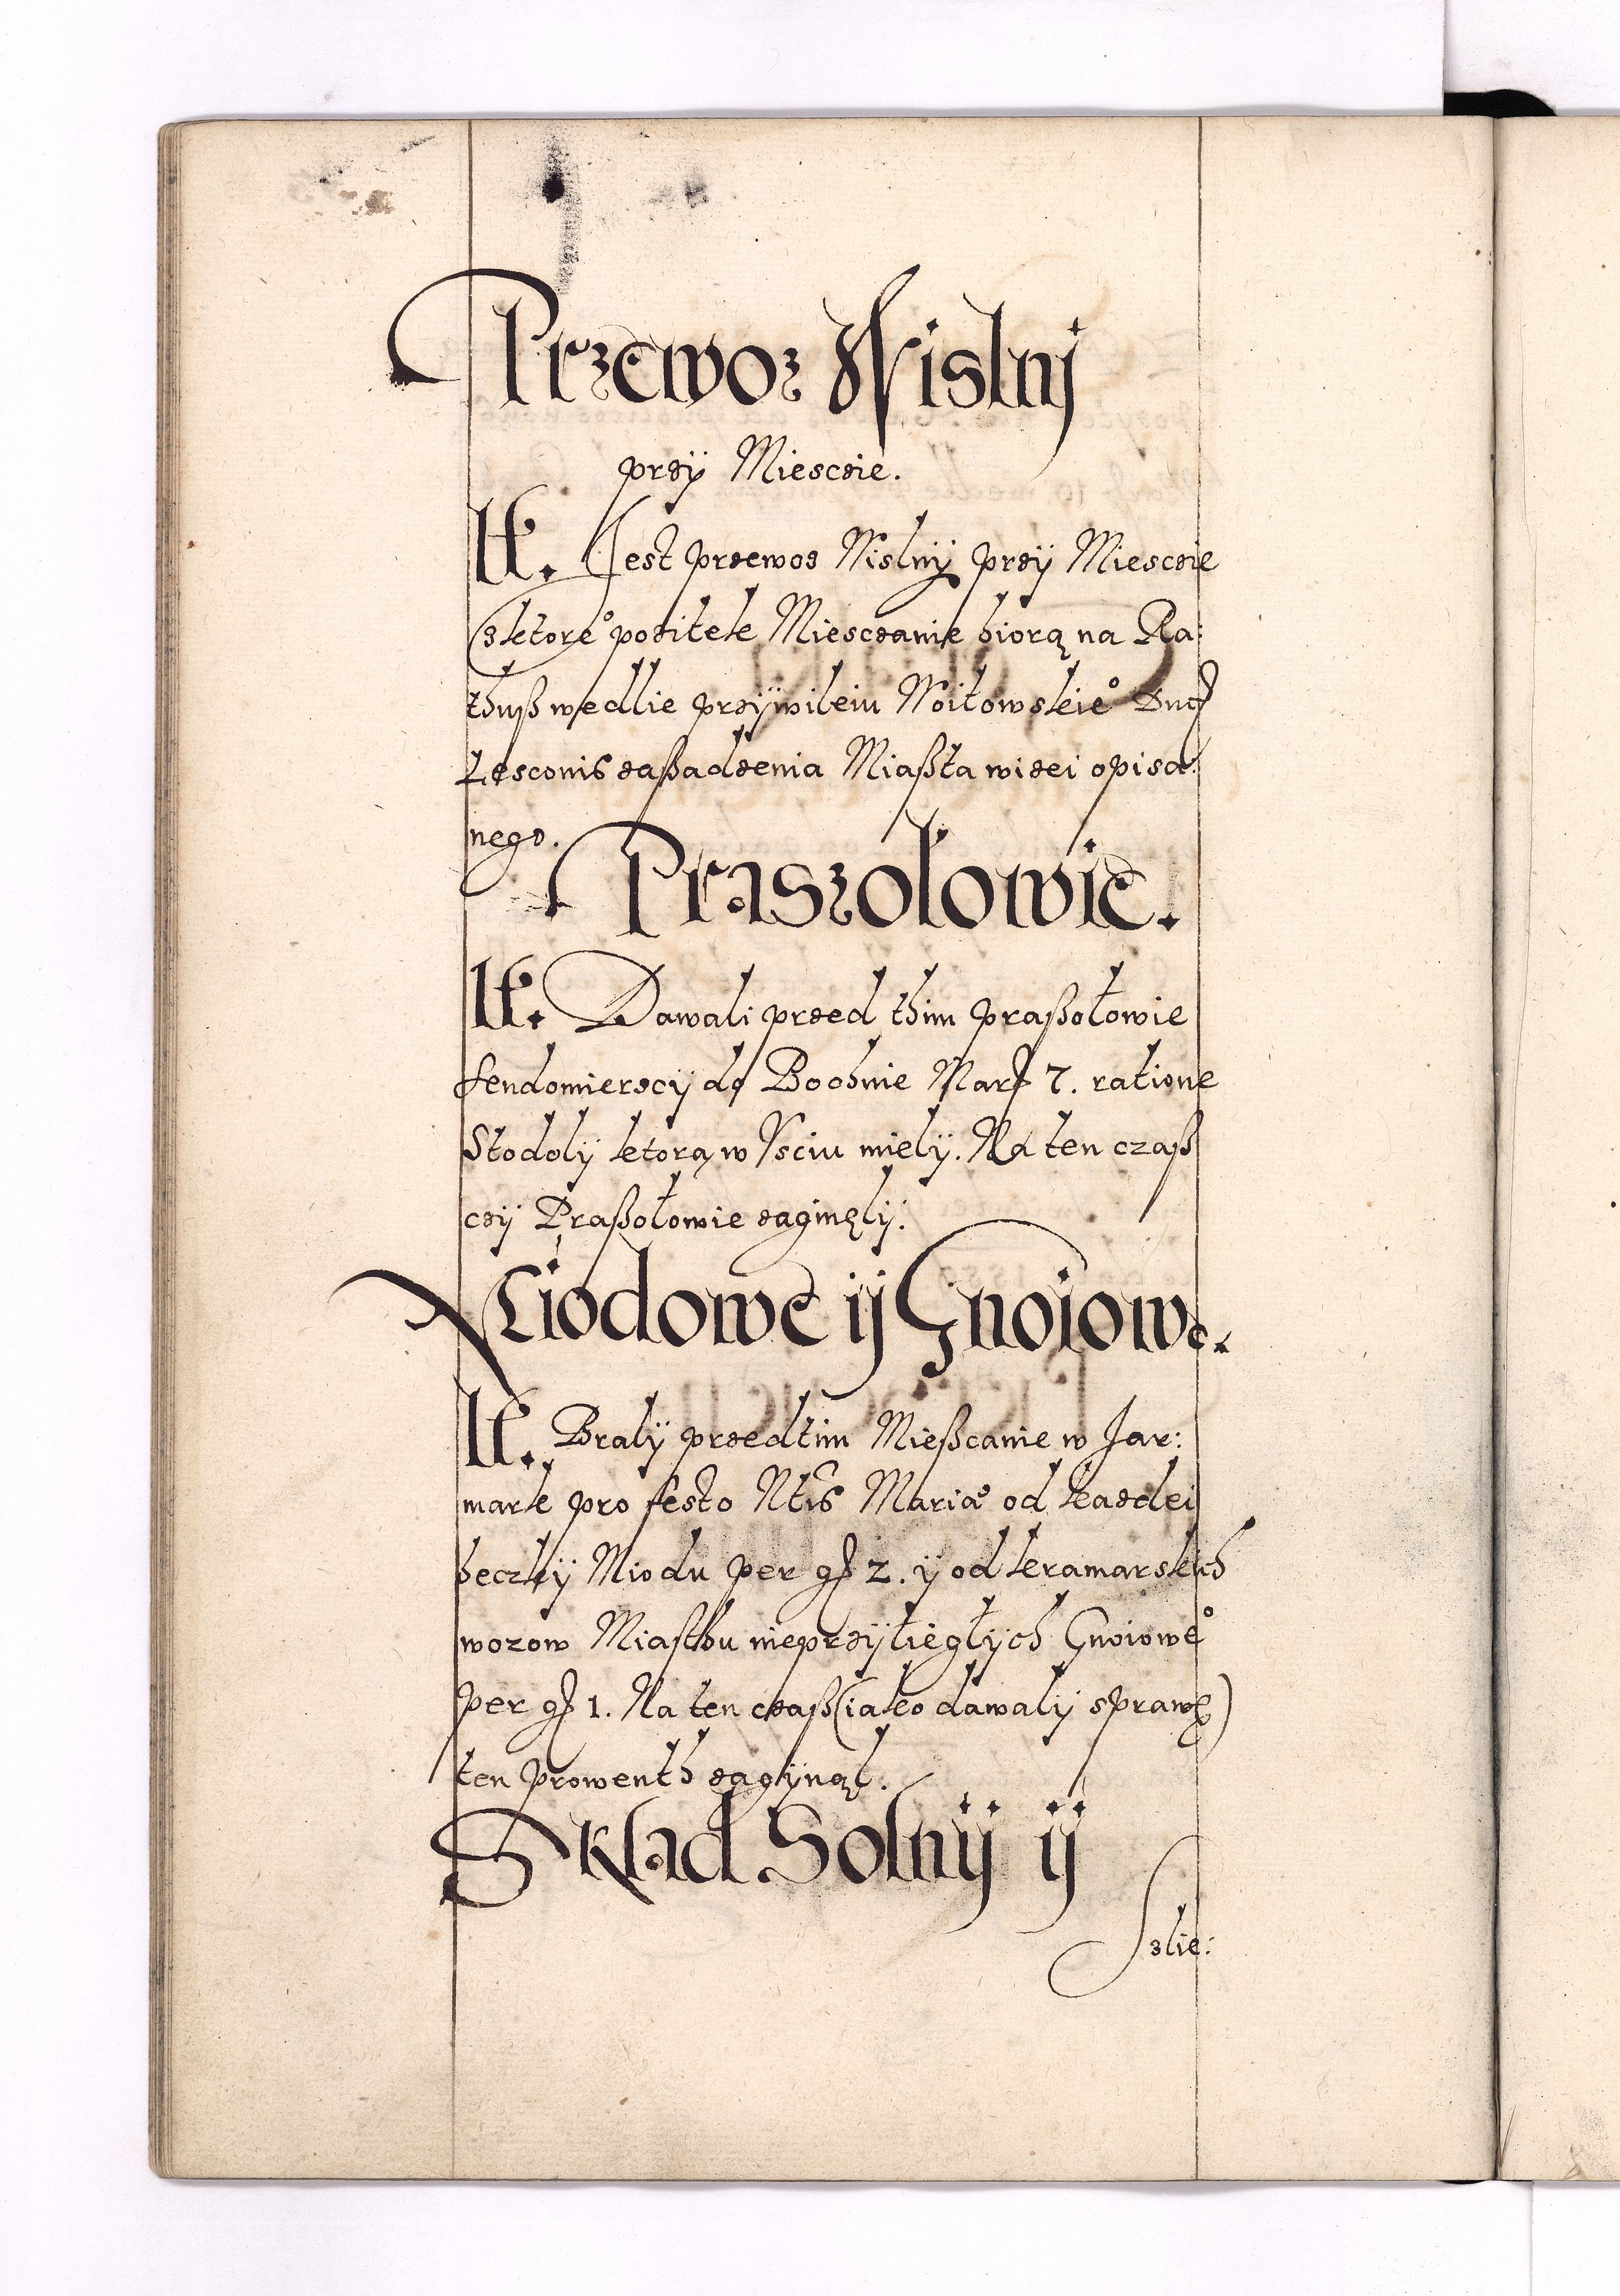 Przewoz Wislny
przÿ Miesczie.
It. Jest przewoz Wislnÿ przÿ Miesczie
z ktore° pozitek Miesczanie biorą na Ra:
thuß wedlie przÿwileiu Woitowskie° Duc
Lesconis zaßadzenia Miaßta wizei opisa:
nego.
Praszołowie.
It. Dawali przed thim praßołowie
Sendomierzcÿ do Bochnie Mar 7. ratione
Stodolÿ ktorą w Vsciu mielÿ. Na ten czaß
czÿ Praßołowie zaginęlÿ.
Miodowe ÿ Gnoiowe.
It. Bralÿ przedtim Mießcanie w Jar:
mark pro festo Ntis Mariæ od kazdei
beczkÿ Miodu per g 2. ÿ od kramarskich
wozow Miasthu nieprzÿłiegłÿch Gnoiowe°
per g 1. Na ten czaß (iako dawalÿ sprawę)
ten prowenth zagÿnął.
Skład Solnÿ ÿ
Szlie: